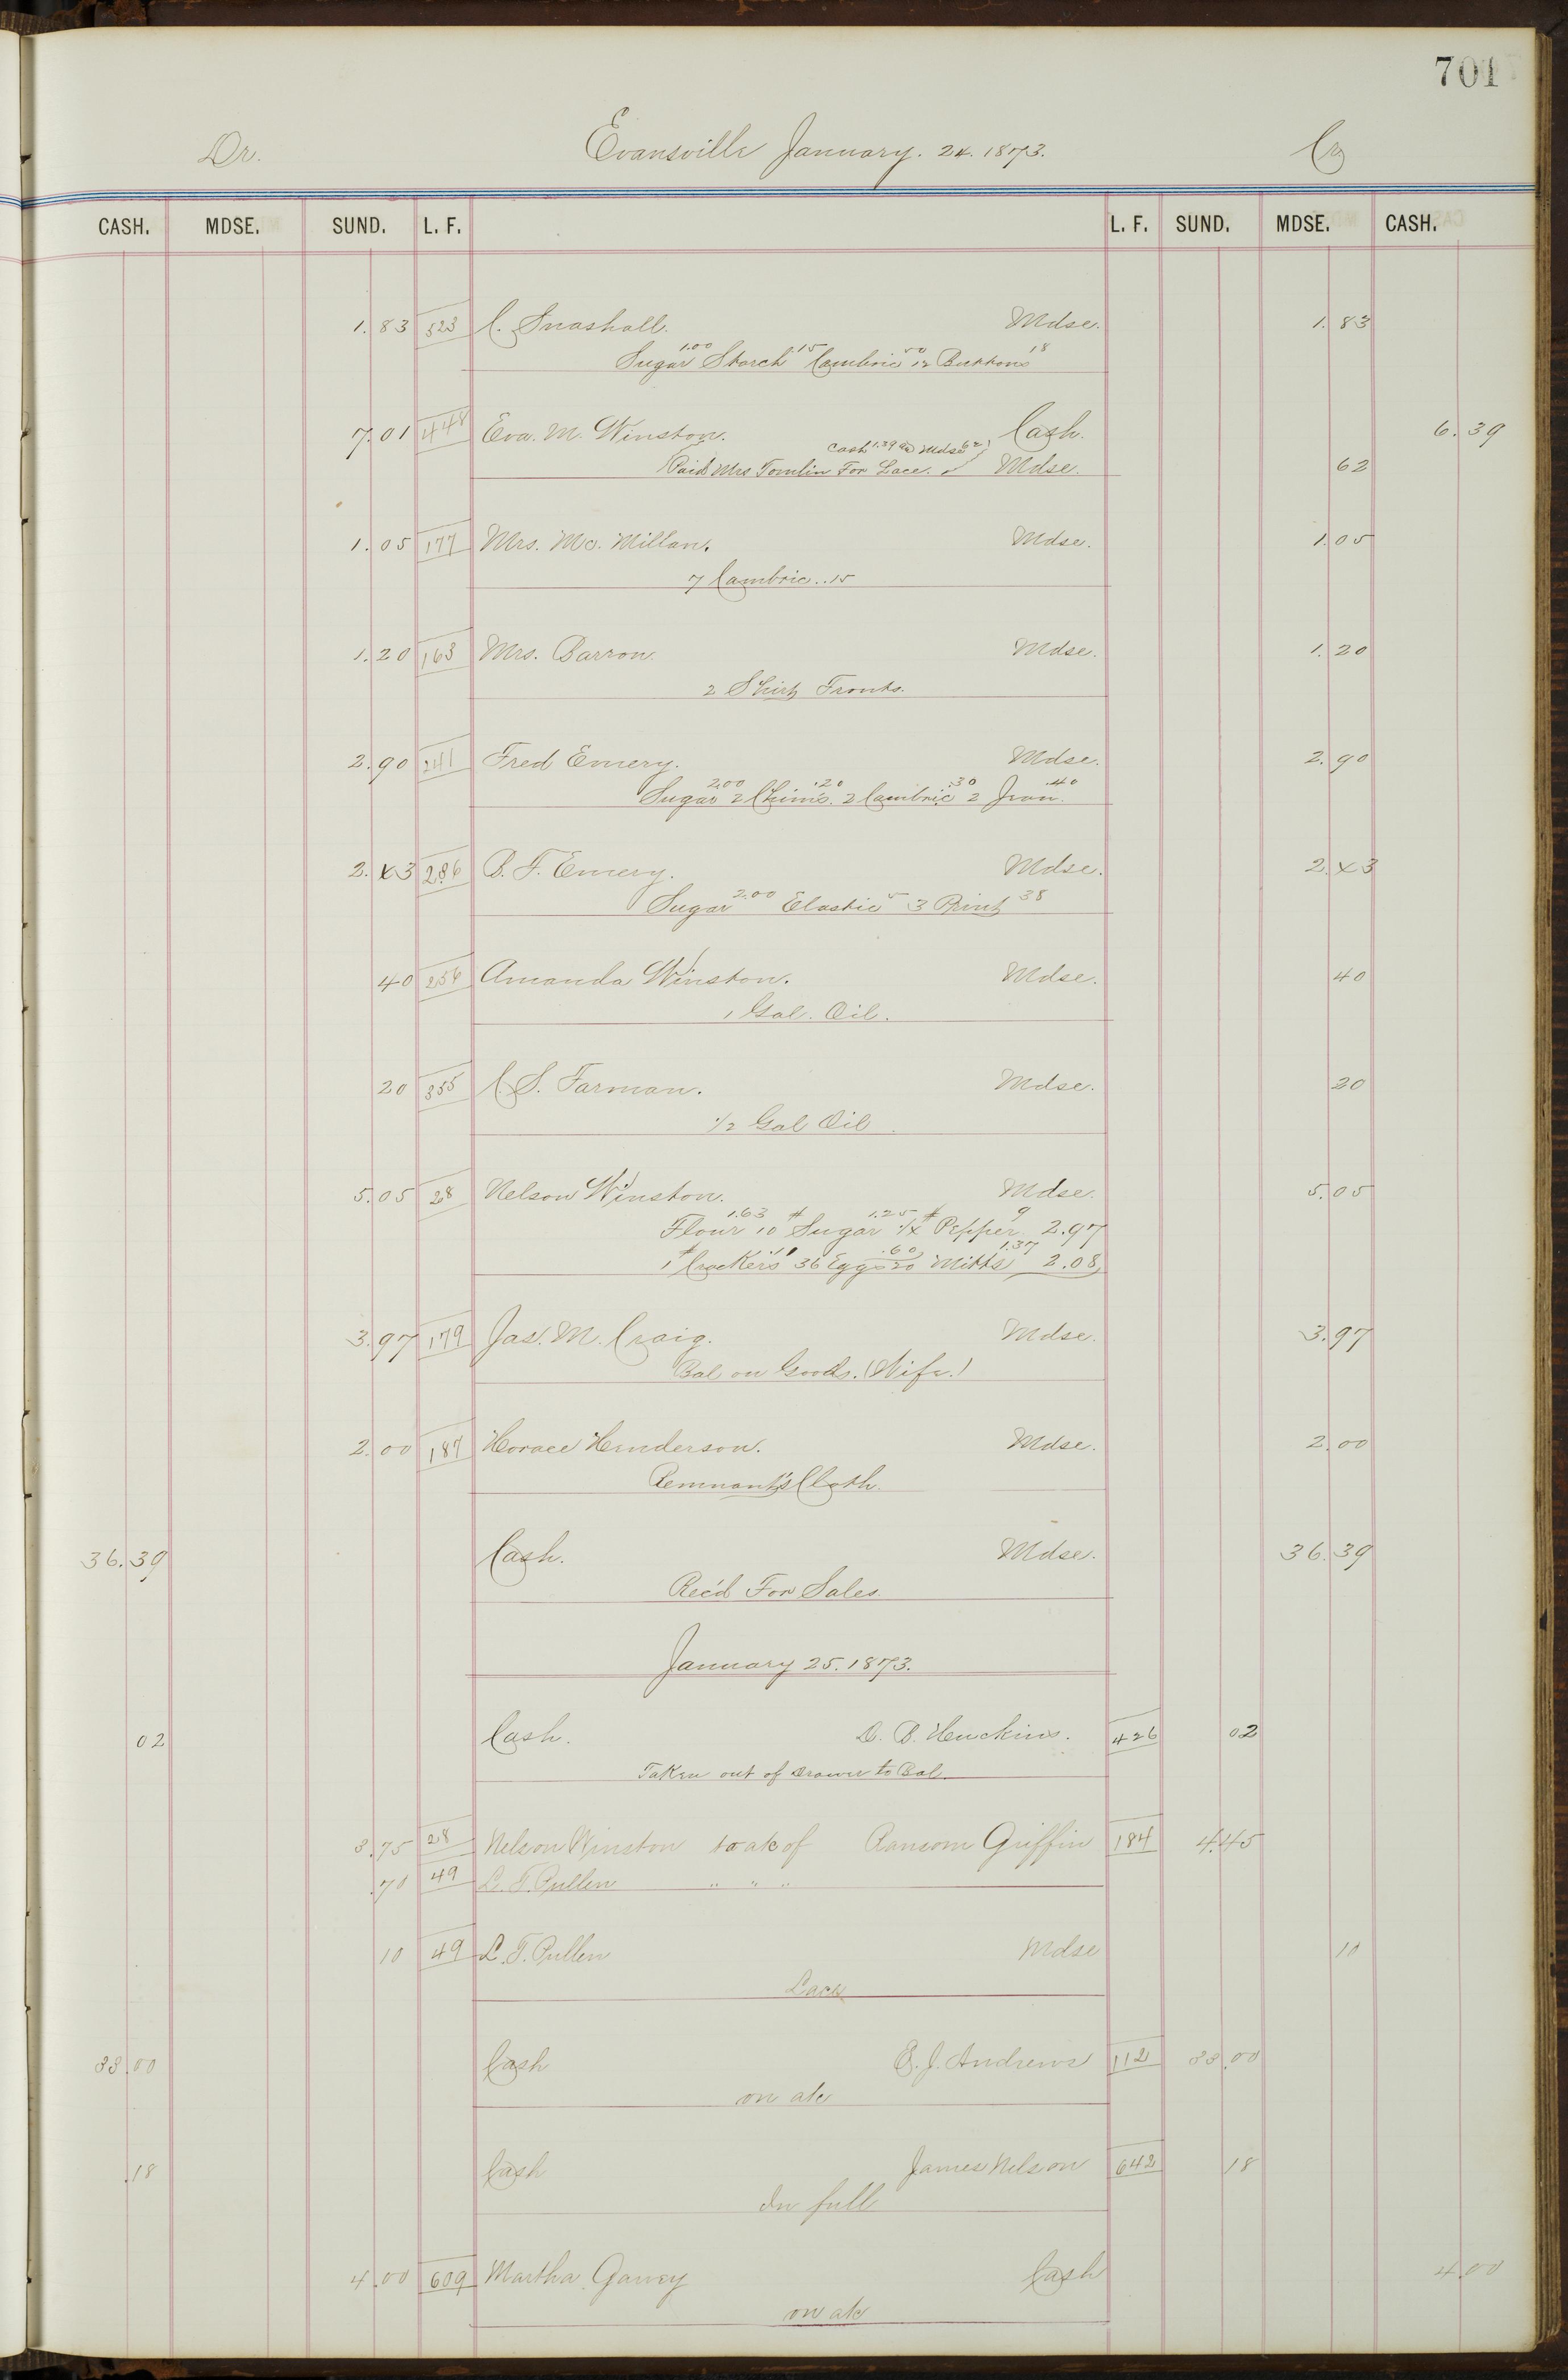 701
Dr. Evansville January. 24. 1873. Cr
CASH. MDSE. SUND. L. F. L. F. SUND. MDSE. CASH.
1.83 523 C. Snashall. Mdse. 1.83
Sugar 1.00 Starch 15 Cambric 50 12 Buttons 18
7.01 448 Eva. M. Winston. Cash. 6.39
Cash 1.39 Mdse 62
Paid Mrs Tomlin For Lace. Mdse. 62
1.05 177 Mrs. Mc. Millan. Mdse. 1.05
7 Cambric..15
1.20 163 Mrs. Barron. Mdse. 1.20
2 Shirt Fronts.
2.90 241 Fred Emery. Mdse. 2.90
Sugar 2.00 2 Chim's. .20 2 Cambric .30 2 Jean. .40
2.43 286 B. F. Emery. Mdse. 2.43
Sugar 2.00 Elastic 5 3 Print 38
40 256 Amanda Winston. Mdse. 40
1 Gal. Oil.
20 355 C. S. Farman. Mdse. 20
1/2 Gal Oil.
5.05 28 Nelson Winston. Mdse. 5.05
Flour 1.63 10 # Sugar 1.25 1/4 # Pepper 9 2.97
1 # Crackers .11 36 Eggs 20 .60 Mitts 1.37 2.08
3.97 179 Jas. M. Craig. Mdse. 3.97
Bal on Goods. (Wife.)
2.00 187 Horace Henderson. Mdse. 2.00
Remnants Cloth.
36.39 Cash. Mdse. 36.39
Rec'd For Sales
January 25. 1873.
02 Cash. D. B. Henckins. 426 02
Taken out of Drawer to Bal.
3.75 28 Nelson Winston to a/c of Ransom Griffin 184 4.45
.70 49 L. T. Pullen " " "
10 49 L. T. Pullen Mdse 10
Lace
33.00 Cash E. J. Andrews 112 33.00
on a/c
.18 Cash James Nelson 642 18
In full
4.00 609 Martha Garvey Cash 4.00
on a/c